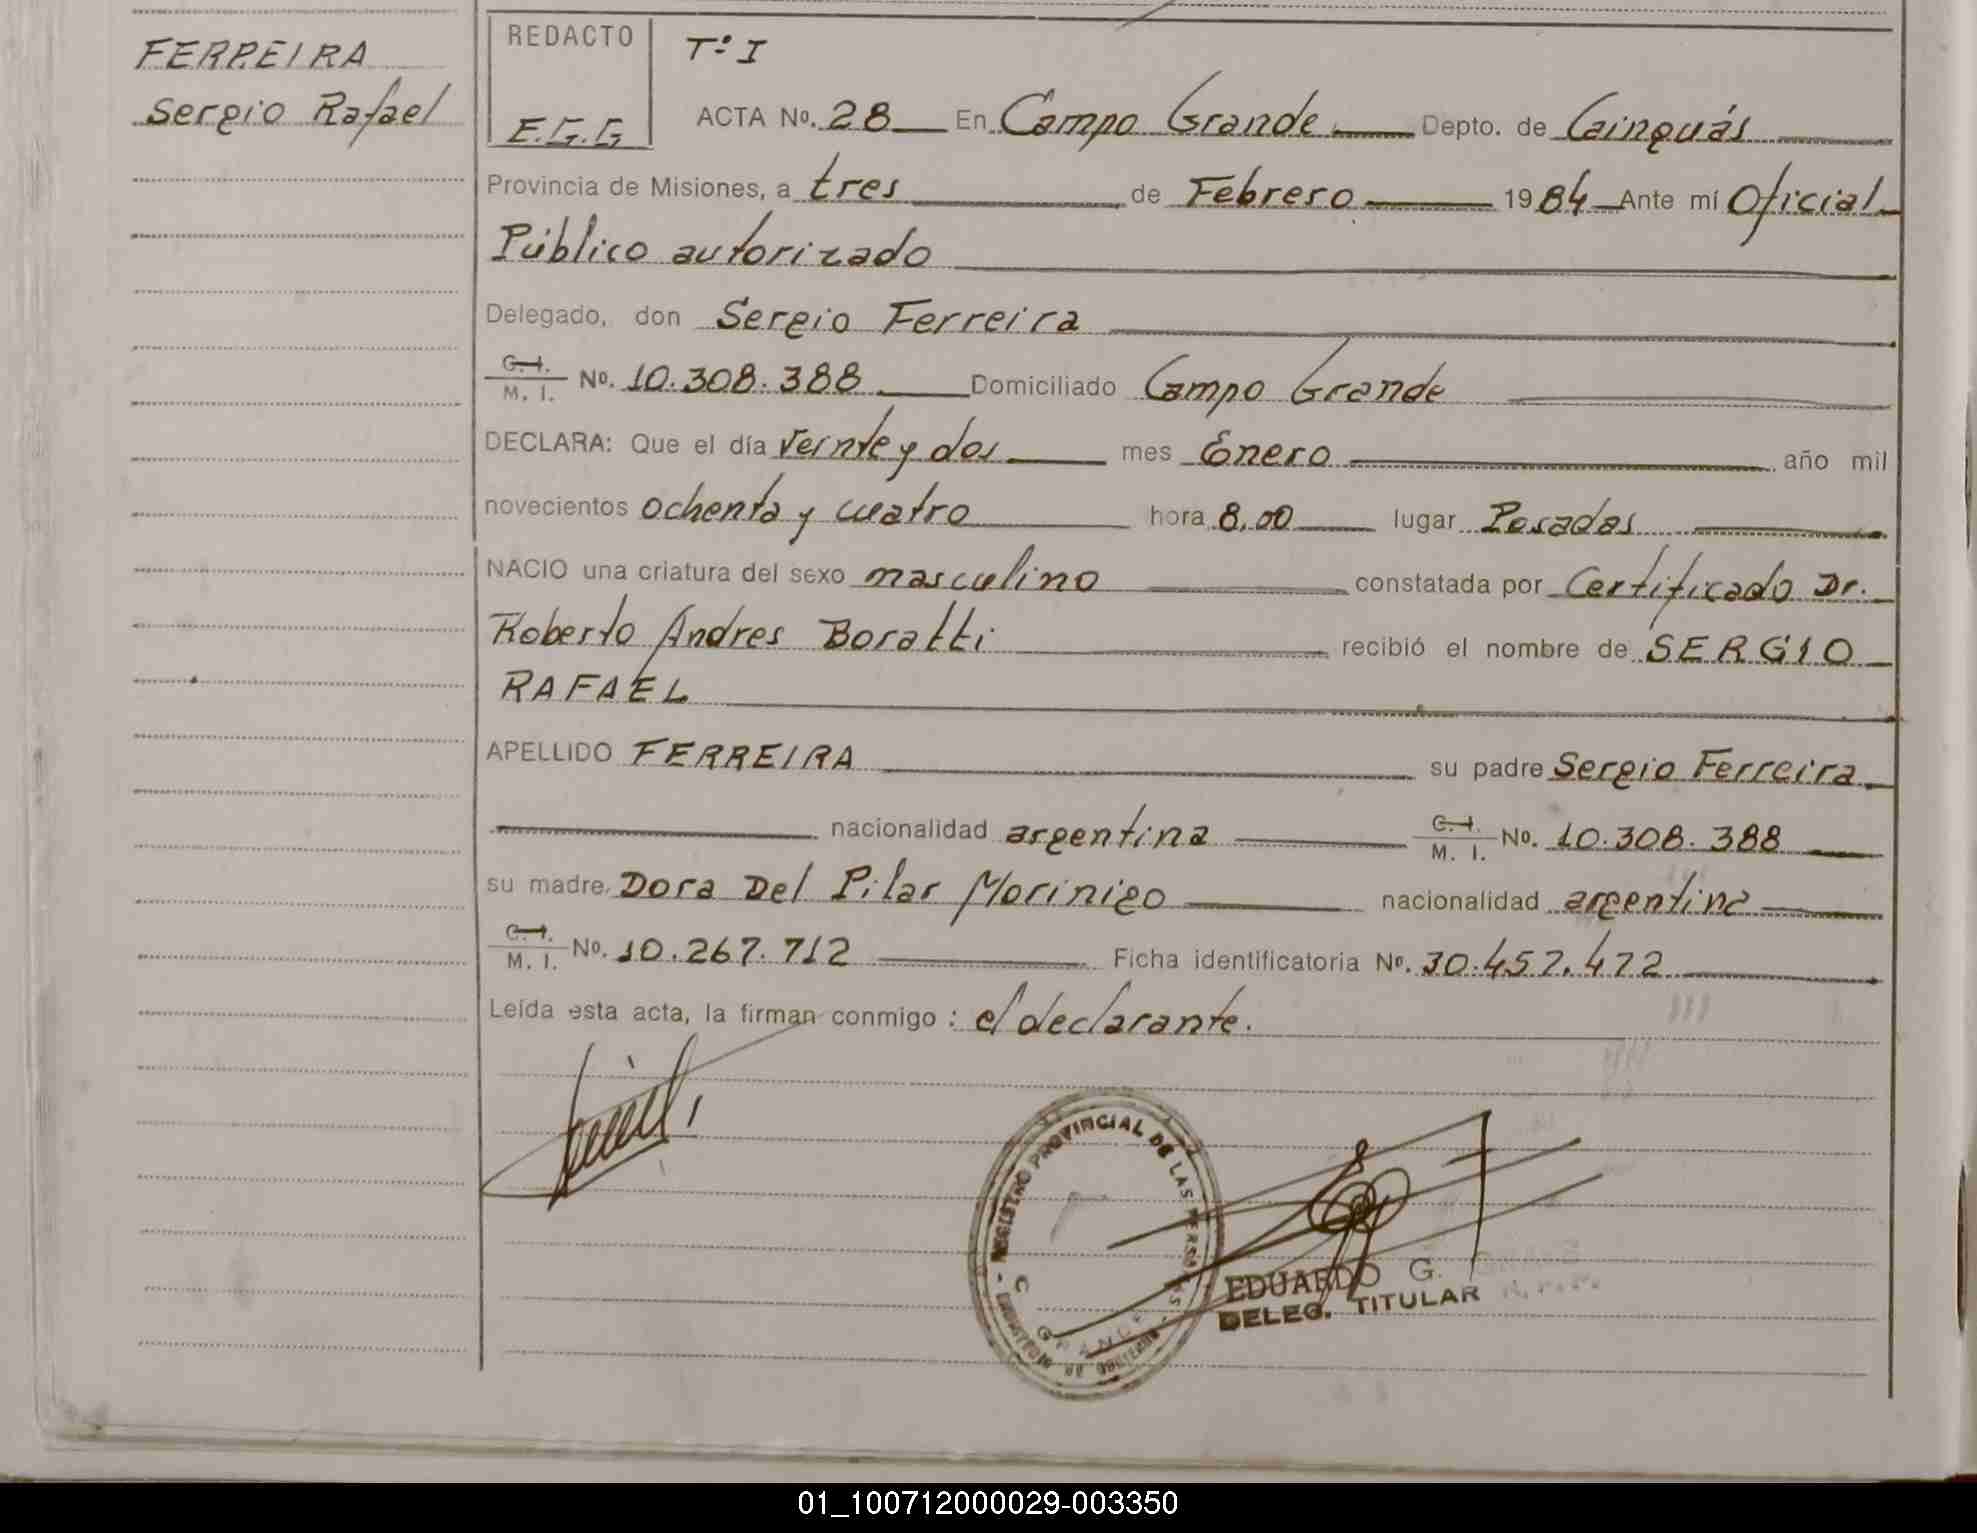 FERREIRA
Sergio Rafael
REDACTO
E.G.G
Tº I
ACTA Nº. 28 En Campo Grande Depto. de Cainguás
Provincia de Misiones, a tres de Febrero 1984 Ante mí Oficial
Público autorizado
Delegado, don Sergio Ferreira
C. I.
M. I. Nº. 10.308.388 Domiciliado Campo Grande
DECLARA: Que el día Veinte y dos mes Enero año mil
novecientos ochenta y cuatro hora 8,00 lugar Posadas
NACIO una criatura del sexo masculino constatada por Certificado Dr.
Roberto Andres Boratti recibió el nombre de SERGIO
RAFAEL
APELLIDO FERREIRA su padre Sergio Ferreira
nacionalidad argentina C. I.
M. I. Nº. 10.308.388
su madre Dora Del Pilar Morinigo nacionalidad argentina
C. I.
M. I. Nº. 10.267.712 Ficha identificatoria Nº. 30.457.472
Leída esta acta, la firman conmigo: el declarante.
REGISTRO PROVINCIAL DE LAS PERSONAS
C. GRANDE
EDUARDO G.
DELEG. TITULAR
01_100712000029-003350